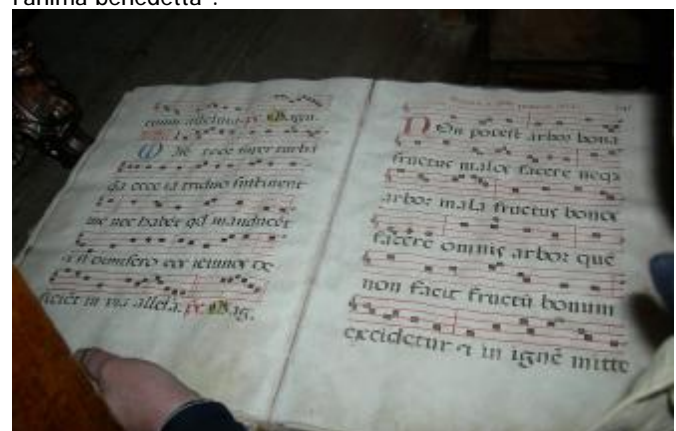 l'anima benedetta".
alleluia. ps. Magn.
super turba
qa ecce ia triduo sustinent
me nec habēt qd manducēt
⁊ si dimisero eos ieiunos de
ficiēt in via allela. ps. Mag.
Non potest arbor bona
fructus malos facere neqz
arbor mala fructus bonos
facere omnis arbor que
non facit fructū bonum
excidetur ⁊ in ignē mitte